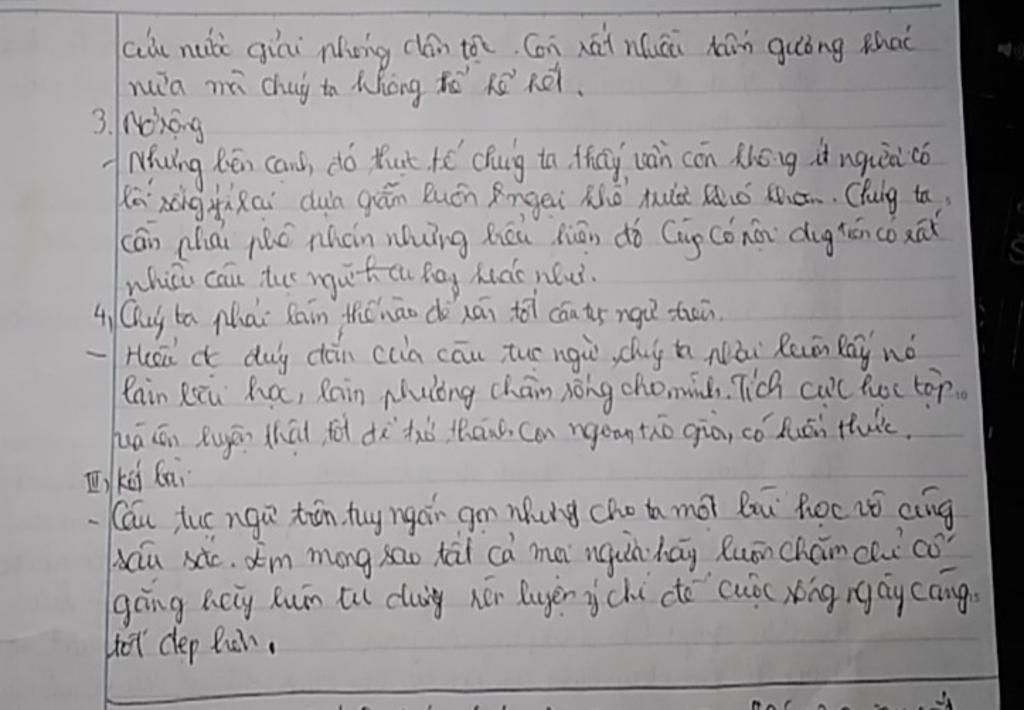 cứu nước giải phóng dân tộc. Còn rất nhiều tấm gương khác
nữa mà chúg ta không thể kể hết.
3. Mở rộng
- Nhưng bên cạnh, đó thực tế chúg ta thấy vẫn còn không ít người có
lối sống ỷ lại dựa giẫm luôn ngại khổ trước khó khăn. Chúg ta
cần phải phê phán những biểu hiện đó Cũg có nội dug trên có rất
nhiều câu tục ngữ hay khác như.
4, Chúg ta phải làm thế nào để tốt câu tục ngữ trên.
- Hiểu đc đúg đắn của câu tục ngữ, chúg ta phải luôn lấy nó
làm bài học, làm phương châm sống cho mình. Tích cực học tập
và rèn luyện thật tốt để trở thành con ngoan trò giỏi, có kiến thức.
III, Kết bài
- Câu tục ngữ trên tuy ngắn gọn nhưng cho ta một bài học vô cùng
sâu sắc. Em mong sao tất cả mọi người hãy luôn chăm chỉ cố
gắng hãy luôn tu dưỡng rèn luyện ý chí để cuộc sống ngày càng
tốt đẹp hơn.